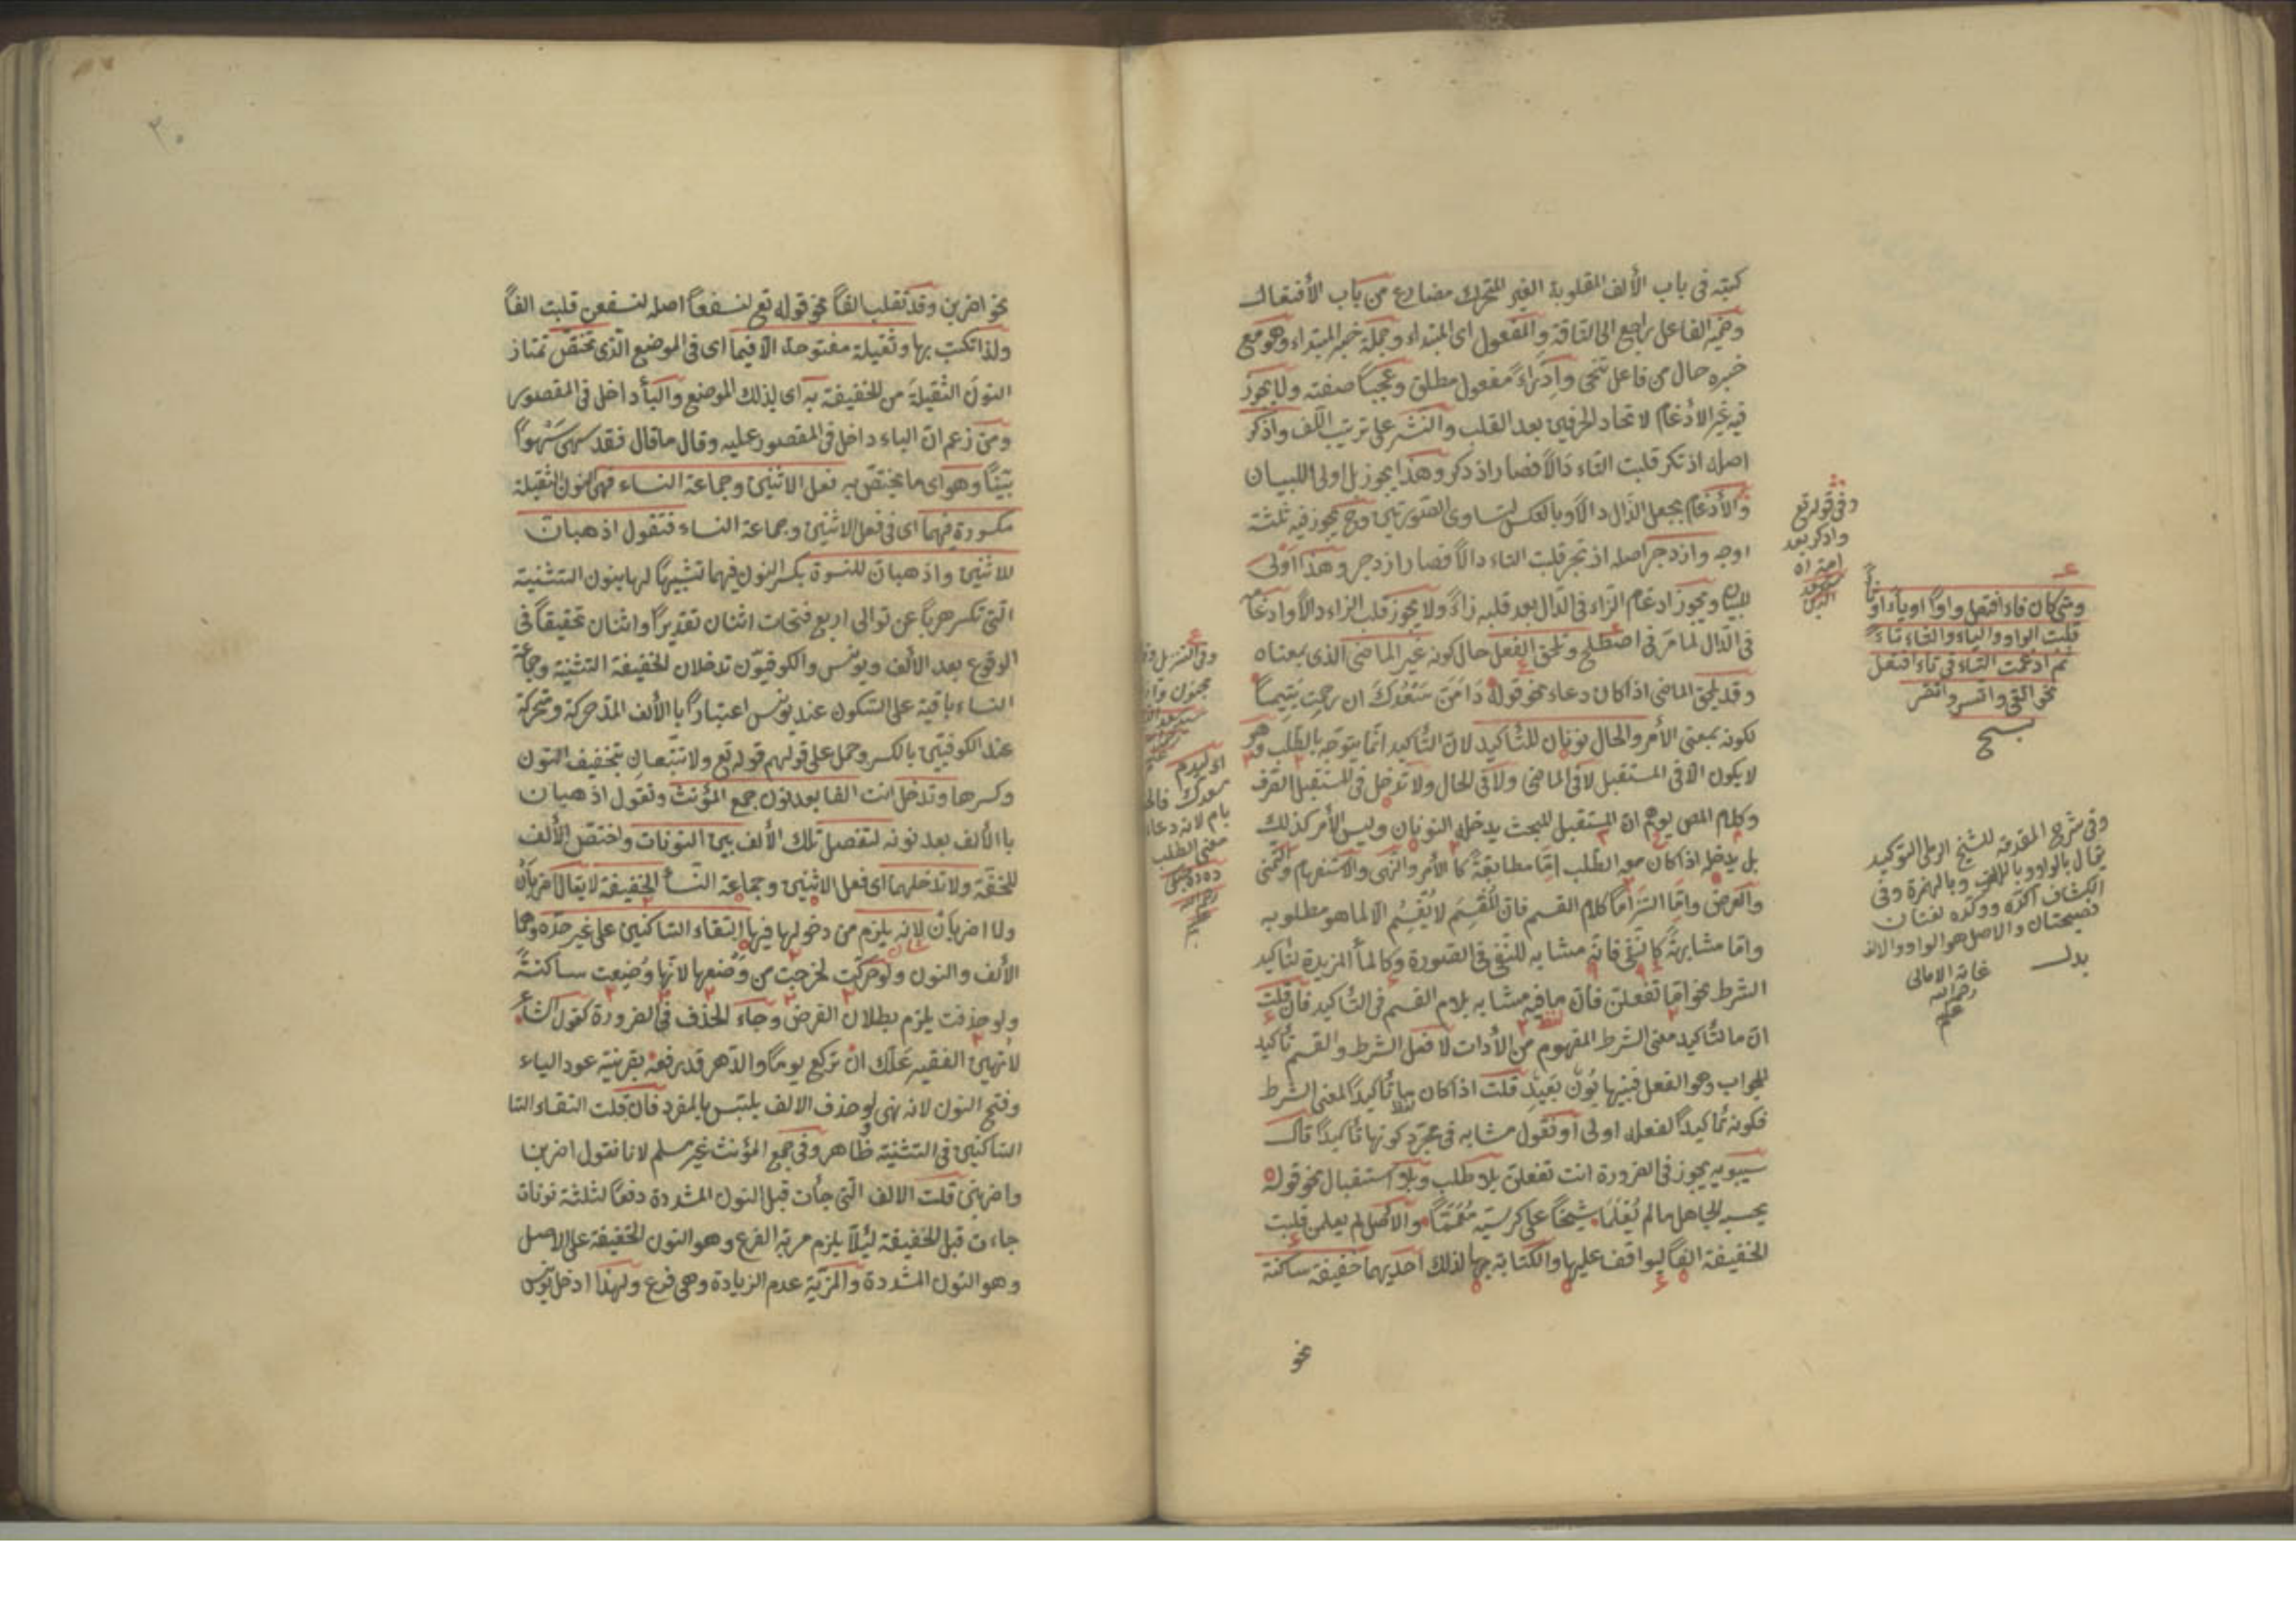 كتبته فى باب الألف المقلوبة الغير المتحرك مضارع من باب الأفتعال
وضمير الفاعل راجع الى الناقة والمفعول اى المبتداء وجملة خبر المبتداء وهو مع
خبره حال من فاعل تنحى وادّراءً مفعول مطلق وعجبًا صفته ولا يجوز
فيه غير الأدغام لاتحاد الحرفين بعد القلب والنشر على ترتيب اللف واذكر
اصله اذتكر قلبت التاء دالاً فصار اذدكر وهذا يجوز بل اولى للبيان
والأدغام بجعل الذال دالاً وبالعكس لتساوى الصورتين وح يجوز فيه ثلثة
اوجه وازدجر اصله ازتجر قلبت التاء دالاً فصار ازدجر وهذا أولى
للبيان ويجوز ادغام الزاء فى الدال بعد قلبه زاءً ولا يجوز قلب الزاء دالاً وادغامه
فى الدال لما مر فى اصطلح وتلحق الفعل حال كونه غير الماضى الذى بمعناه
وقد يلحق الماضى اذا كان دعاء نحو قوله دَامَنَّ سَعْدُكَ ان رحمتِ متيمًا
لكونه بمعنى الأمر والحال نونان للتأكيد لان التأكيد انما يتوجه بالطلب وهو
لا يكون الا فى المستقبل لا فى الماضى ولا فى الحال ولا تدخل فى المستقبل الصرف
وكلام المص يوهم ان المستقبل البحت يدخله النونان وليس الأمر كذلك
بل يدخله اذا كان معه الطلب امّا مطابقةً كا الأمر والنهى والاستفهام والتمنى
والعرض وامّا التزامًا كلام القسم فان المُقسِم لا يُقسِم الا لما هو مطلوبه
وامّا مشابهةً كالنّفى فانّه مشابه للنّهى فى الصورة وكا لما المزيدة لتاكيد
الشرط نحو امّا تفعلنّ فانّ ما فيه مشابه بلام القسم فى التّأكيد فان قلت
انّ ما لتأكيد معنى الشرط المفهوم من الأدات لا فعل الشرط والقسم تأكيد
الجواب وهو الفعل فبينهما بَوْنٌ بَعِيدٌ قلت اذا كان ما تأكيدًا لمعنى الشرط
فكونه تأكيدًا لفعله اولى او نقول مشابه فى مجرّد كونها تأكيدًا قال
سيبويه يجوز فى الضرورة انت تفعلنّ بلا طلب وبلا استقبال نحو قوله
يحسبه الجاهل ما لم يَعْلَمَا شيخًا على كرسيّه مُعَمَّمًا والأصل لم يعلمن قلبت
الخفيفة الفًا ليوافق عليها والكتابة بها لذلك احديهما خفيفة ساكنة
نحو
وفى قوله تع
واذكر بعد
امة اى
ومتى كان فاء افتعل واوًا او ياء او ثاء
قلبت الواو والياء والثاء تاء
ثم ادغمت التاء فى تاء افتعل
نحو اتقى واتسر واتغر
وفى شرح المقدمة للشيخ الرملى التوكيد
يقال بالواو وبالألف وبالهمزة وفى
الكشاف اكّده ووكّده لغتان
فصيحتان والاصل هو الواو والالف
بدل
غاية الامالى
رحمه الله
نحو اضربن وقد تقلب الفًا نحو قوله تع لنسفعًا اصله لنسفعن قلبت الفًا
ولذا تكتب بها وثقيلة مفتوحة الا فيما اى فى الموضع الّذى تختصّ تمتاز
النون الثقيلة من الخفيفة به اى بذلك الموضع والباء داخل فى المقصور
ومن زعم ان الباء داخل فى المقصور عليه وقال ما قال فقد سهى سَهْوًا
بيّنًا وهو اى ما يختصّ به فعل الاثنين وجماعة النساء فهى النون الثقيلة
مكسورة فيهما اى فى فعل الاثنين وجماعة النساء فتقول اذهبانّ
للاثنين واذهبنانّ للنسوة بكسر النون فيهما تشبيهًا لها بنون التثنية
الّتى تكسر هربًا عن توالى اربع فتحات اثنان تقديرًا واثنان تحقيقًا فى
الوقوع بعد الألف ويونس والكوفيّون تدخلان الخفيفة التثنية وجماعة
النساء باقية على السّكون عند يونس اعتبارًا با الألف المدّ حركة ومتحركة
عند الكوفيّين بالكسر وحمل على قولهم قوله تع ولا تتّبعانِ بتخفيف النون
وكسرها وتدخل انت الفا بعد نون جمع المؤنث وتقول اذهبنانّ
با الألف بعد نونه لتفصل تلك الألف بين النونات واختصّ الألف
للخفّة ولا تدخلهما اى فعل الاثنين وجماعة النّساء الخفيفة لا يقال اضربانْ
ولا اضربنانْ لانه يلزم من دخولها فيها التقاء الساكنين على غير حدّه وهما
الألف والنون ولو حركت لخرجت من وَضْعها لانّها وُضِعت ساكنةً
ولو حذفت يلزم بطلان الغرض وجاء الحذف فى الضرورة كقول الشاعر
لا تهين الفقير علّك ان تركع يومًا والدّهر قد رفعه بقرينة عود الياء
وفتح النون لانه نهى لو حذف الالف يلتبس بالمفرد فان قلت التقاء التا
الساكنين فى التثنية ظاهر وفى جمع المؤنث غير مسلم لانا نقول اضربنا
واضربنى قلت الالف الّتى جاءت قبل النون المشددة دفعًا لثلثة نونات
جاءت قبل الخفيفة لئلّا يلزم مزية الفرع وهو النون الخفيفة على الاصل
وهو النون المشددة والمزيّة عدم الزيادة وهى فرع ولهذا ادخل يونس